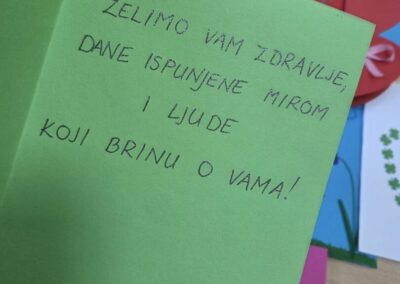 ŽELIMO VAM ZDRAVLJE,
DANE ISPUNJENE MIROM
I LJUDE
KOJI BRINU O VAMA!